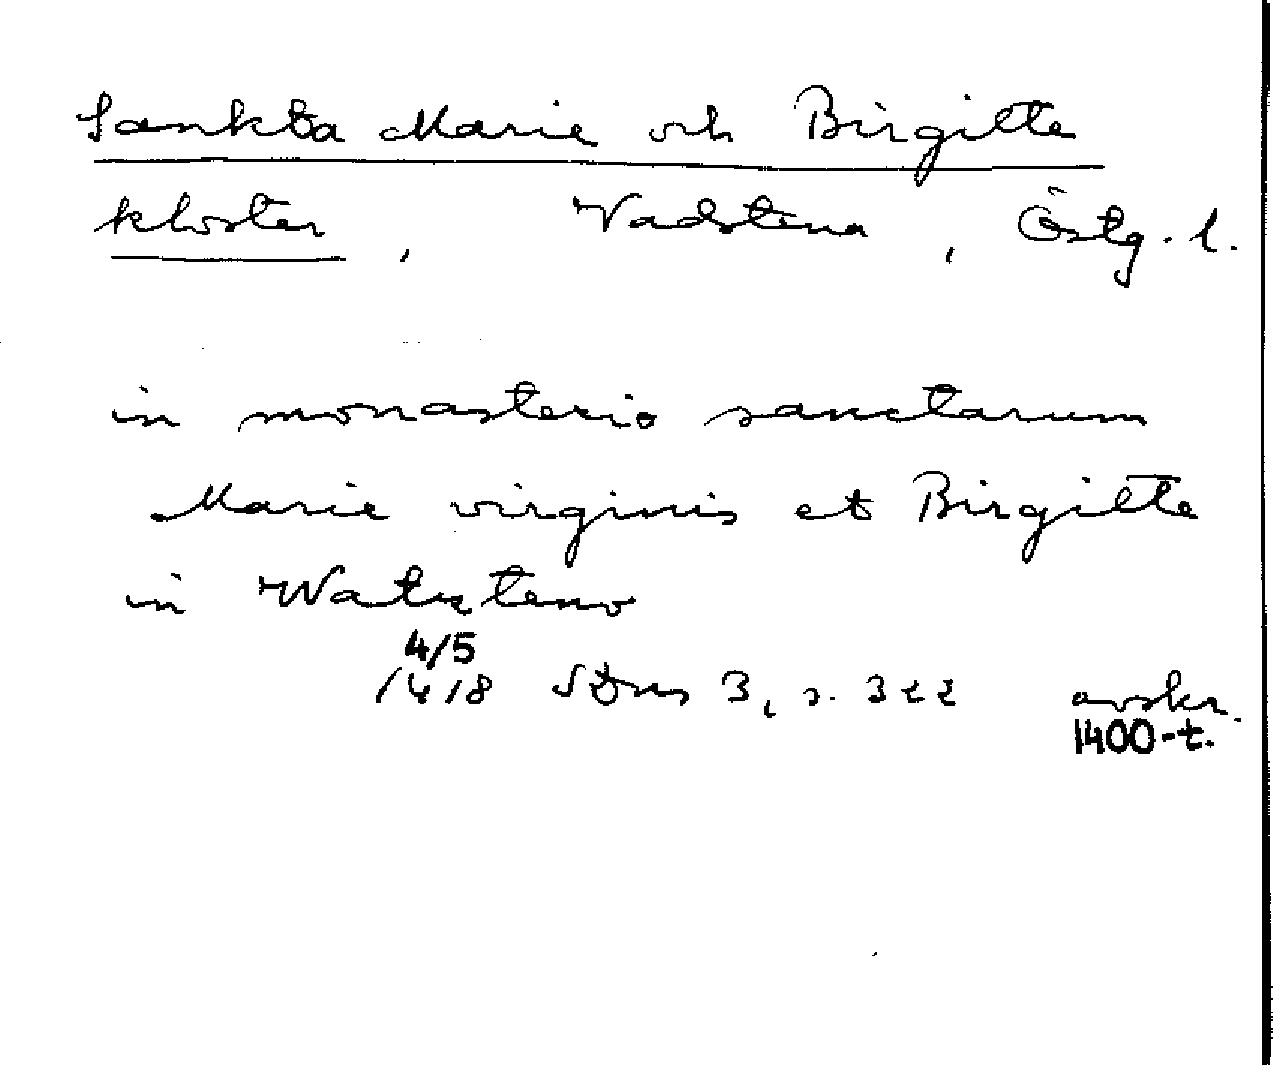 Sankta Marie och Birgitte
kloster, Vadstena, Östg. l.
in monasterio sanctarum
Marie virginis et Birgitte
in Watzsteno
4/5
1418 SDns 3, s. 322 avskr.
1400-t.